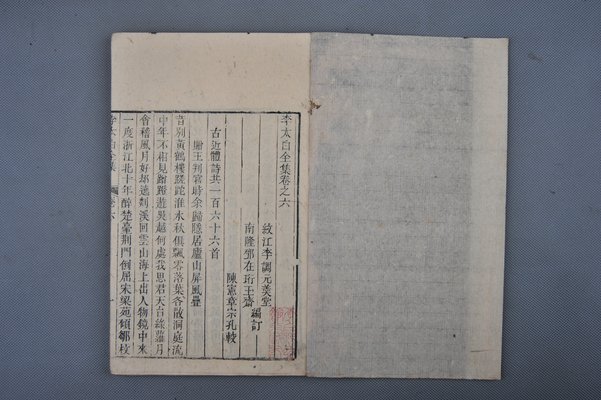 李太白全集卷之六
敘江李調元美堂
南隆鄧在珩玉齋 編訂
陳憲章宗孔較
古近體詩共一百六十六首
贈王判官時余歸隱居廬山屏風疊
昔別黃鶴樓蹉跎淮水秋俱飄零落葉各散洞庭流
中年不相見蹭蹬遊吳越何處我思君天台綠蘿月
會稽風月好却遶剡溪回雲山海上出人物鏡中來
一度浙江北十年醉楚臺荊門倒屈宋梁苑傾鄒枚
李太白全集 卷六 一